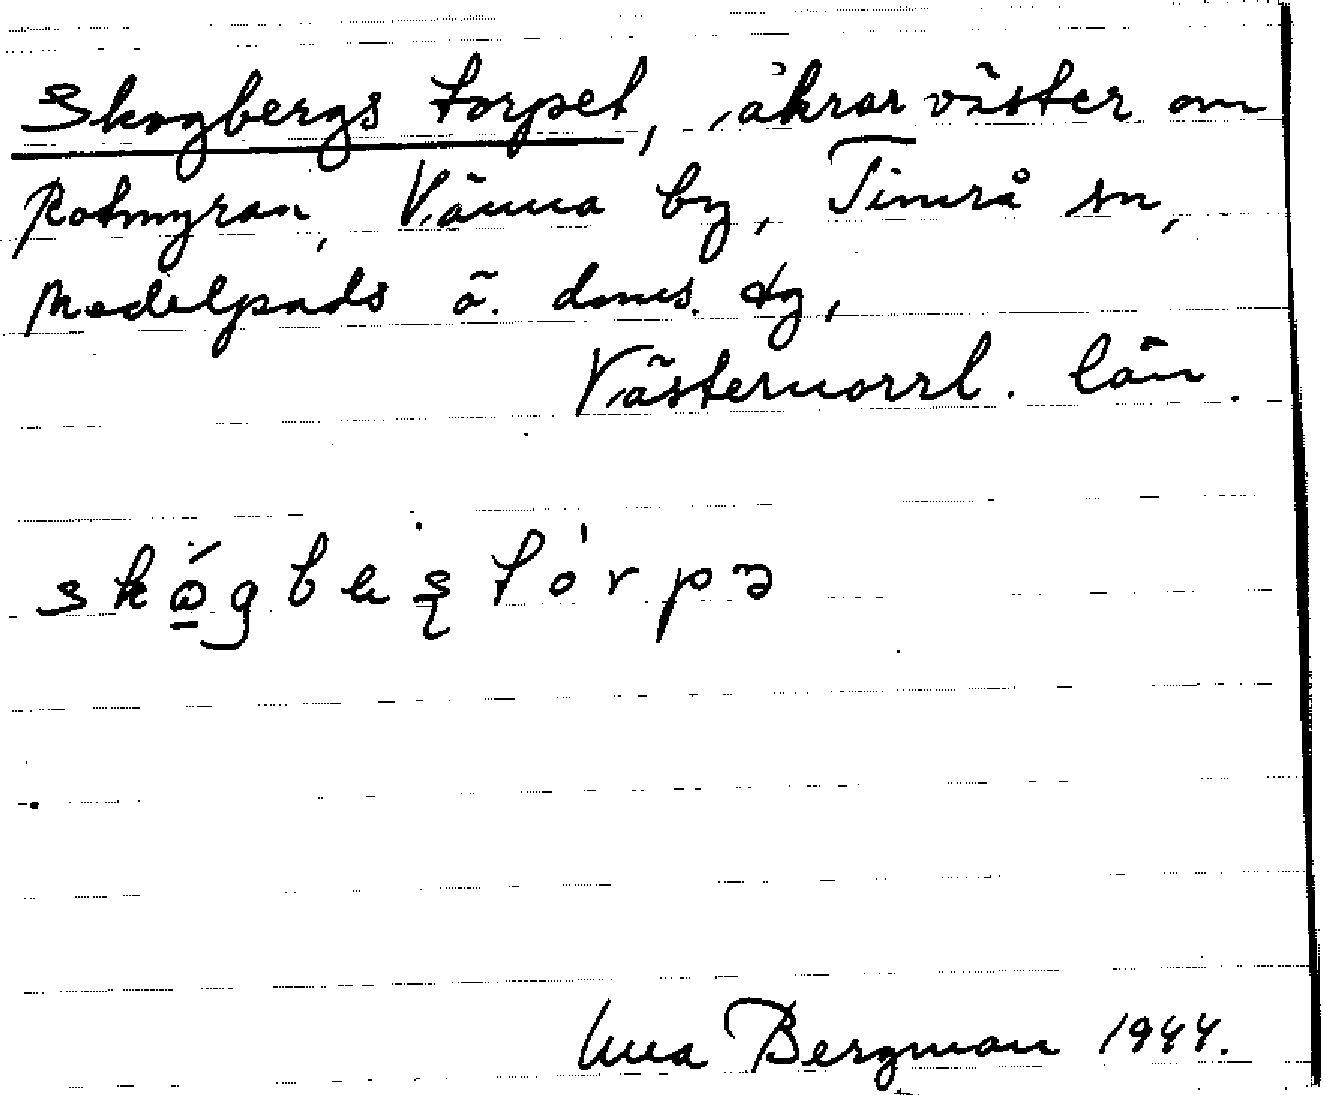 Skogbergs torpet, åkrar väster om
Rotmyran, Vänna by, Timrå sn,
Medelpads ö. doms. tg,
Västernorrl. län.
skógbeʂtórpə
Bergman 1944.